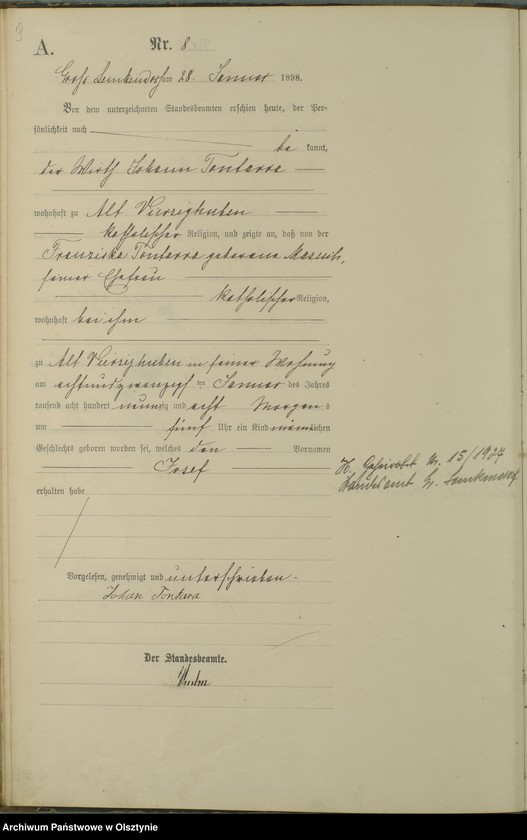 9
A.
Nr. 8
Gross Lemkendorf am 28. Januar 1898.
Vor dem unterzeichneten Standesbeamten erschien heute, der Per-
sönlichkeit nach
be kannt,
der Wirth Johann Tonkarra
wohnhaft zu Alt Vierzighuben
katholischer Religion, und zeigte an, daß von der
Franziska Tonkarra geborene
seiner Ehefrau
katholischer Religion,
wohnhaft bei ihm
zu Alt Vierzighuben in seiner Wohnung
am achtundzwanzigsten Januar des Jahres
tausend acht hundert neunzig und acht Morgens
um fünf Uhr ein Kind männlichen
Geschlechts geboren worden sei, welches den Vornamen
Josef
H. Geheiratet Nr. 15/1924
Standesamt Gr. Lemkendorf
erhalten habe
Vorgelesen, genehmigt und unterschrieben.
Johan Tonkara
Der Standesbeamte.
Archiwum Państwowe w Olsztynie